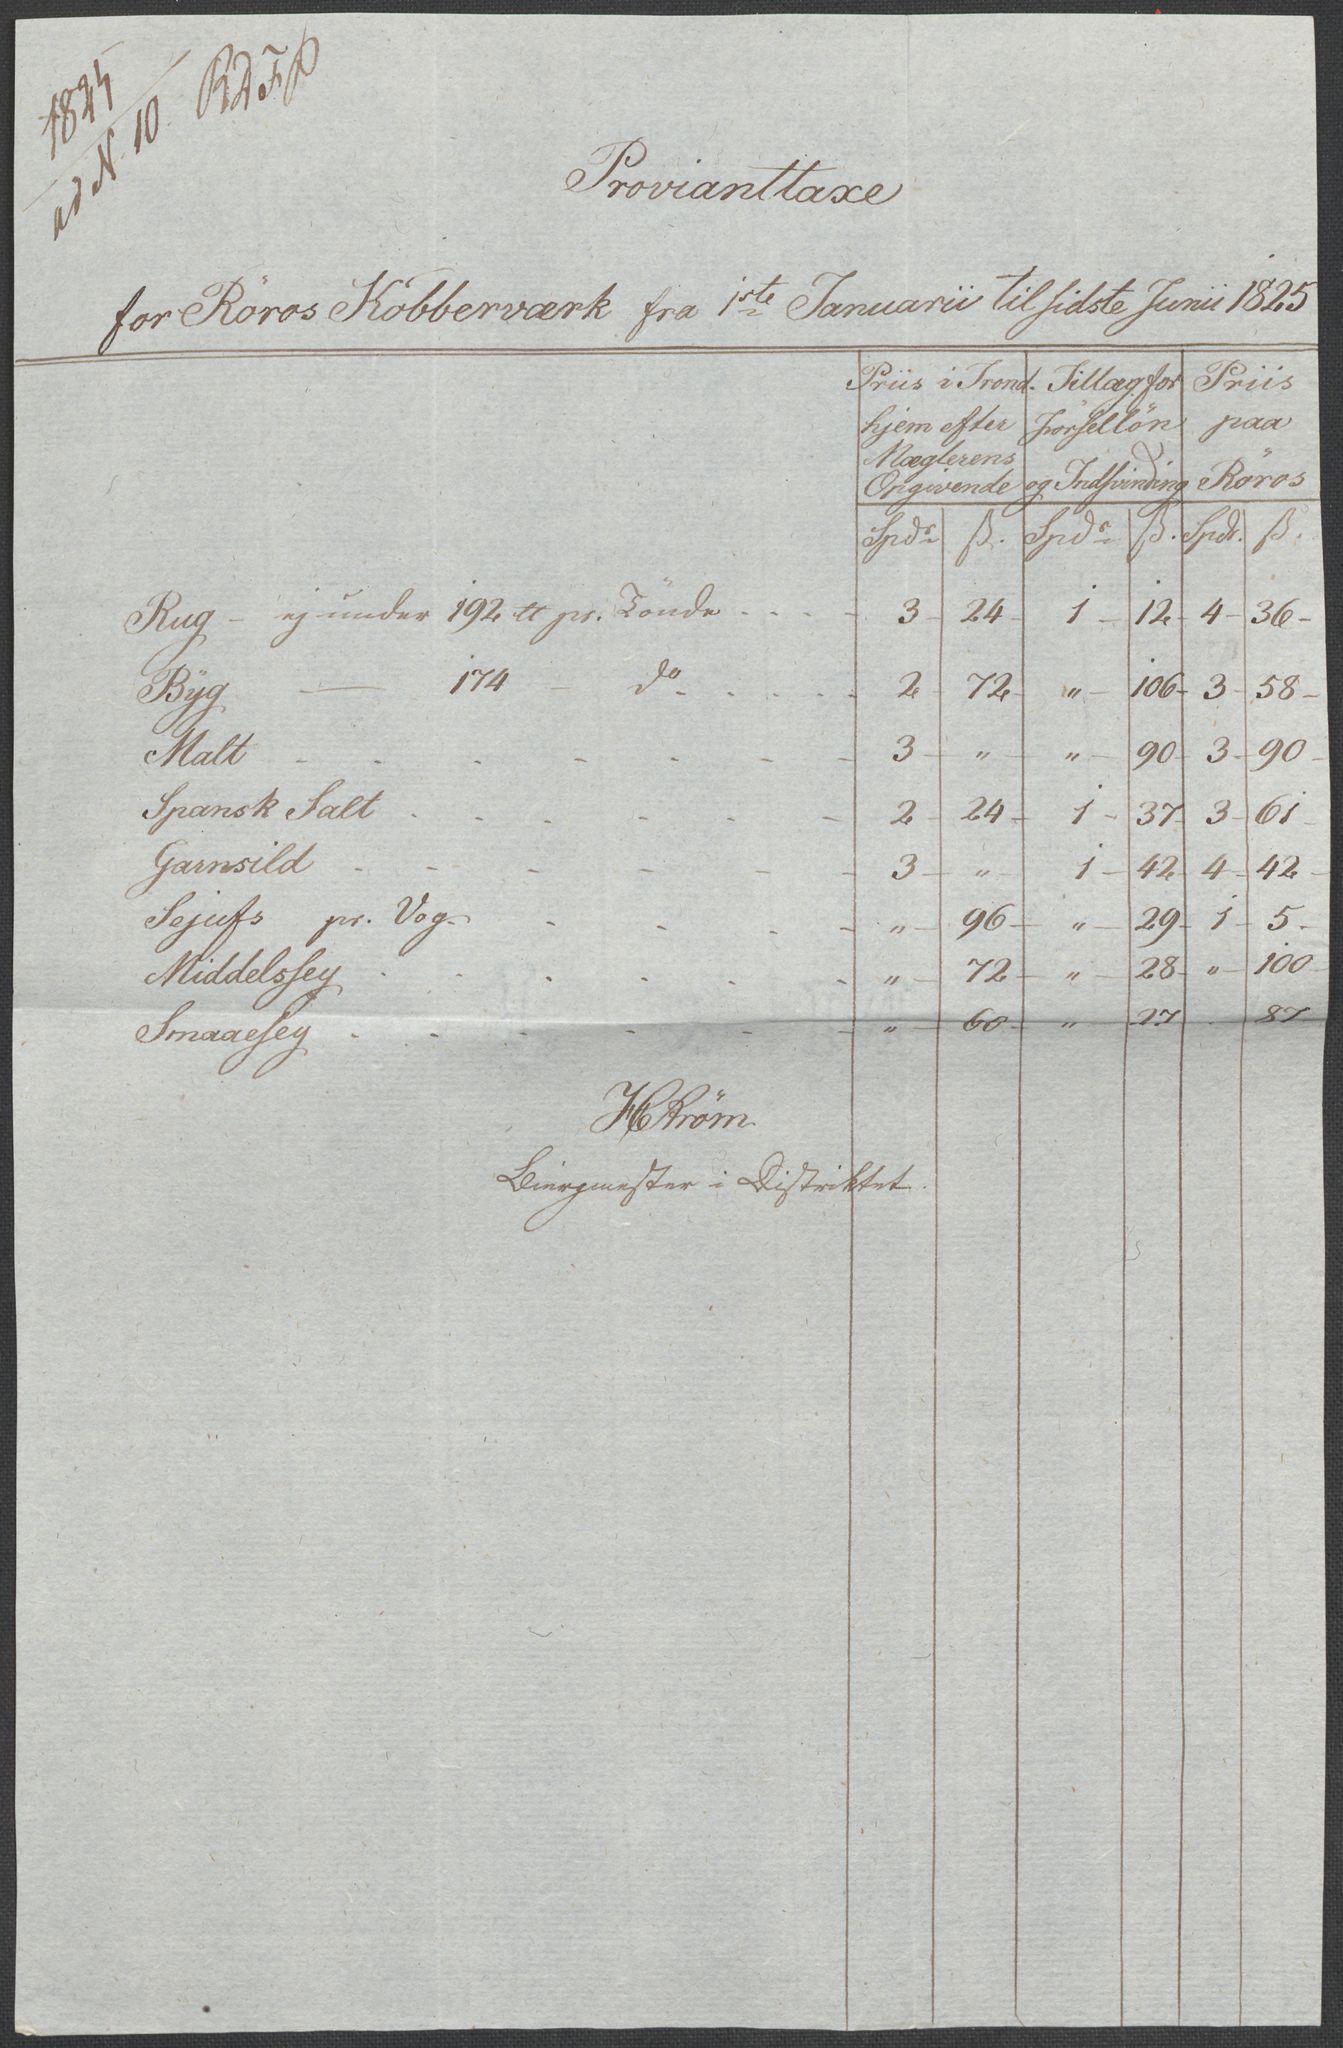 1825
ad N. 10.
Provianttaxe
for Röros Kobberværk fra 1ste Januarii til sidste Junii 1825
Priis i Trond- Tillæg for Priis
hjem efter Försellön paa
Mæglerens
Opgivende og Indsvinding Röros
Spdr ß. Spdr ß. Spdr. ß.
Rug - ej under 192 ℔ pr. Tönde - - - - 3 - 24 - 1 - 12 - 4 - 36 -
Byg — 174 - do - - - - - 2 - 72 - " - 106 - 3 - 58 -
Malt - - - - - - - 3 - " - " - 90 - 3 - 90 -
Spansk Salt - - - - - - 2 - 24 - 1 - 37 - 3 - 61 -
Garnsild - - - - - - 3 - " - 1 - 42 - 4 - 42 -
Sejufs pr. Vog - - - - - " - 96 - " - 29 - 1 - 5 -
Middelssey - - - - - - " - 72 - " - 28 - " - 100 -
Smaaesey - - - - - - " - 60 - " - 27 - 87
HStröm
Biergmester i Distriktet.